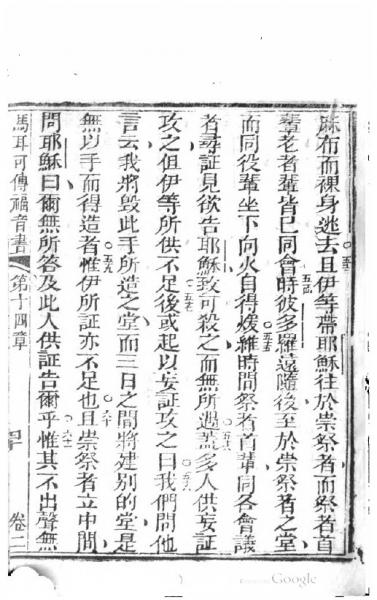 麻布而裸身逃去且伊等帶耶穌往於崇祭者而祭者首
輩老者輩皆已同會時彼多羅遠隨後至於崇祭者之堂
而同役輩坐下向火自得煖維時間祭者首輩同各會議
者尋証見欲告耶穌致可殺之而無所遇蓋多人供妄証
攻之但伊等所供不足後或起以妄証攻之曰我們聞他
言云我將毀此手所造之堂而三日之間將建別的堂是
無以手而得造者惟伊所証亦不足也且崇祭者立中間
問耶穌曰爾無所答及此人供証告爾乎惟其不出聲無
馬耳可傳福音書 第十四章 卷二
Google